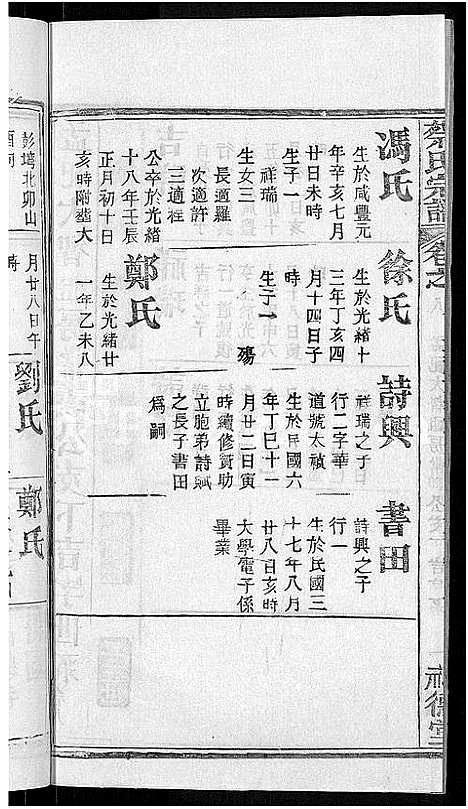 蔡氏宗譜
卷之
馮氏
生於咸豐元
年辛亥七月
廿日未時
生子一
祥瑞
生女三
長適羅
次適許
三適程
公卒於光緒
十八年壬辰
正月初十日
亥時附塟大
彭塆北卯山
徐氏
生於光緒十
三年丁亥四
月十四日子
時
生子一 殤
鄭氏
生於光緒廿
一年乙未八
月廿八日午
時
詩興
祥瑞之子
行二字華
道號太禎
生於民國六
年丁巳十一
月廿二日寅
時續修賛助
立胞弟詩賦
之長子書田
為嗣
書田
詩興之子
行一
生於民國三
十七年八月
廿八日亥時
大學電子係
畢業
劉氏
鄭氏